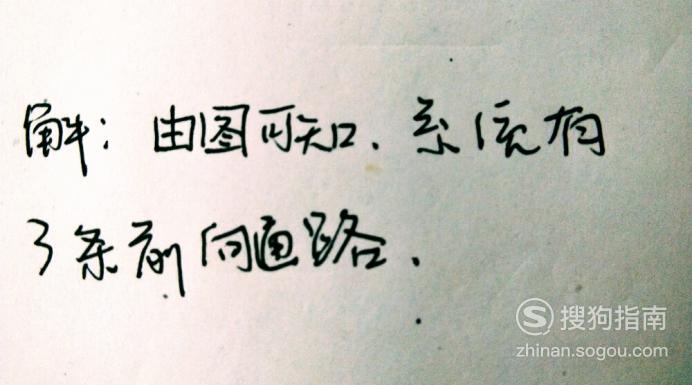 解：由图可知，系统有
3条前向通路．
搜狗指南
zhinan.sogou.com